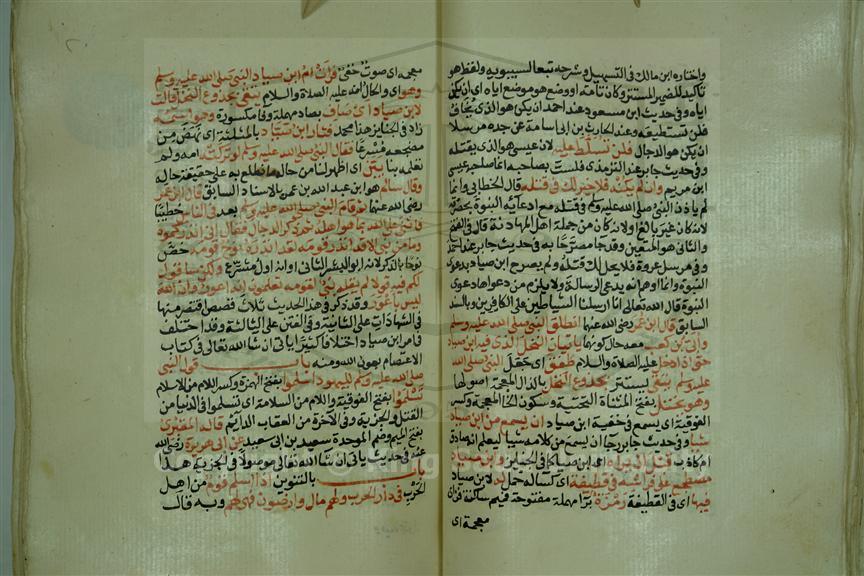 واختاره ابن مالك فى التسهيل وشرحه تبعا لسيبويه ولفظ هو
تاكيد للضمير المستتر وكان تامة او وضع هو موضع اياه اى ان يكن
اياه وفى حديث ابن مسعود عند احمد ان يكن هو الذى تخاف
فلن تستطيعه وعند الحارث بن ابى اسامة عن جده مرسلا
ان يكن هو الدجال فلن تسلط عليه لان عيسى هو الذى يقتله
وفى حديث جابر عند الترمذى فلست بصاحبه انما صاحبه عيسى
ابن مريم وان لم يكنه فلا خير لك فى قتله قال الخطابى وانما
لم ياذن النبى صلى الله عليه وسلم فى قتله مع ادعائه النبوة بحضرته
لانه كان غير بالغ او لانه كان من جملة اهل المهادنة قال فى الفتح
والثانى هو المتعين وقد جا مصرحا به فى حديث جابر عند احمد
وفى مرسل عروة فلا يحل لك قتله ولم يصرح ابن صياد بدعوى
النبوة وانما اوهم انه يدعى الرسالة ولا يلزم من دعواها دعوى
النبوة قال الله تعالى انا ارسلنا الشياطين على الكافرين وبالسند
السابق قال ابن عمر رضى الله عنهما انطلق النبى صلى الله عليه وسلم
وابى بن كعب معه حال كونهما ياتيان النخل الذى فيه ابن صياد
حتى اذا دخل عليه الصلاة والسلام طفق اى جعل النبى صلى الله
عليه وسلم يتقى يستتر بجذوع النخل بالذال المعجمة اصولها
وهو يختل بفتح المثناة التحتية وسكون الخا المعجمة وكسر
الفوقية اى يسمع فى خفية ابن صياد ان يسمع من ابن صياد
شيا وفى حديث جابر رجا ان يسمع من كلامه شيا ليعلم انه صادق
ام كاذب قبل ان يراه اى ابن صياد كما فى الجنايز وابن صياد
مضطجع على فراشه فى قطيفة اى كسا له خمل له لابن صياد
فيها اى فى القطيفة رمزة برا مهملة مفتوحة فميم ساكنة فزاى
معجمة اى
معجمة اى صوت خفى فرات ام ابن صياد النبى صلى الله عليه وسلم
وهو اى والحال انه عليه الصلاة والسلام يتقى بجذوع النخل فقالت
لابن صياد اى صاف بصاد مهملة وفا مكسورة وهو اسمه
زاد فى الجنايز هذا محمد فثار ابن صياد بالمثلثة اى نهض من
مضجعه مسرعا فقال النبى صلى الله عليه وسلم لو تركته امه ولم
تعلمه بنا بين اى اظهر لنا من حاله ما نطلع به على حقيقة حاله
وقال سالم هو ابن عبد الله بن عمر بالاسناد السابق قال ابن عمر
رضى الله عنهما ثم قام النبى صلى الله عليه وسلم بعد فى الناس خطيبا
فاثنى على الله بما هو اهله ثم ذكر الدجال فقال انى انذركموه
وما من نبى الا قد انذر قومه لقد انذره نوح قومه خص
نوحا بالذكر لانه ابو البشر الثانى او انه اول مشرع ولكن ساقول
لكم فيه قولا لم يقله نبى لقومه تعلمون انه اعور وان الله
ليس باعور وقد ذكر فى هذا الحديث ثلاث قصص اقتصر منها
فى الشهادات على الثانية وفى الفتن على الثالثة وقد اختلف
فى امر ابن صياد اختلافا كثيرا ياتى ان شا الله تعالى فى كتاب
الاعتصام بعون الله ومنه باب قول النبى
صلى الله عليه وسلم لليهود اسلموا بفتح الهمزة وكسر اللام من الاسلام
تسلموا بفتح الفوقية واللام من السلامة اى تسلموا فى الدنيا من
القتل والجزية وفى الاخرة من العقاب الدايم قاله المقبرى
بفتح الميم وضم الموحدة سعيد بن ابى سعيد عن ابى هريرة رضى الله
عنه فى حديث ياتى ان شا الله تعالى موصولا فى الجزية هذا
باب بالتنوين اذا اسلم قوم من اهل
الحرب فى دار الحرب ولهم مال وارضون فهى لهم وبه قال